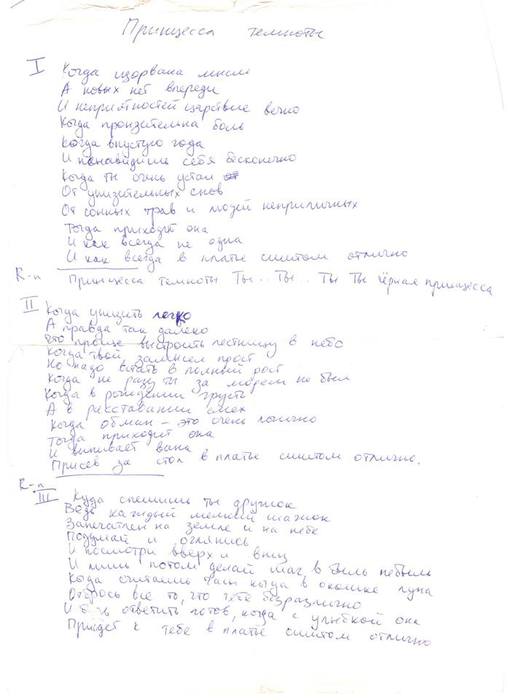 Принцесса темноты
I Когда изорвана мысль
А новых нет впереди
И неприятностей царствие вечно
Когда пронзительна боль
Когда впустую года
И ненавидишь себя бесконечно
Когда ты очень устал
От унизительных снов
От сонных трав и людей неприличных
Тогда приходит она
И как всегда не одна
И как всегда в платье сшитом отлично
R-н Принцесса темноты Ты.. Ты. Ты Ты чёрная принцесса
II Когда унизить легко
А правда так далеко
Что проще выстроить лестницу в небо
Когда твой замысел прост
Но надо встать в полный рост
Когда не разу ты за морем не был
Когда в рождении грусть
А в расставании смех
Когда обман – это очень логично
Тогда приходит она
И выпивает вина
Присев за стол в платье сшитом отлично.
R-н
III Куда спешишь ты дружок
Ведь каждый мелкий шажок
Запечатлен на земле и на небе
Подумай и оглянись
И посмотри вверх и вниз
И лишь потом делай шаг в быль небыль
Когда в окошке луна
Отбрось все то, что тебе безразлично
И ответить готов, когда с улыбкой она
Придет к тебе в платье сшитом отлично